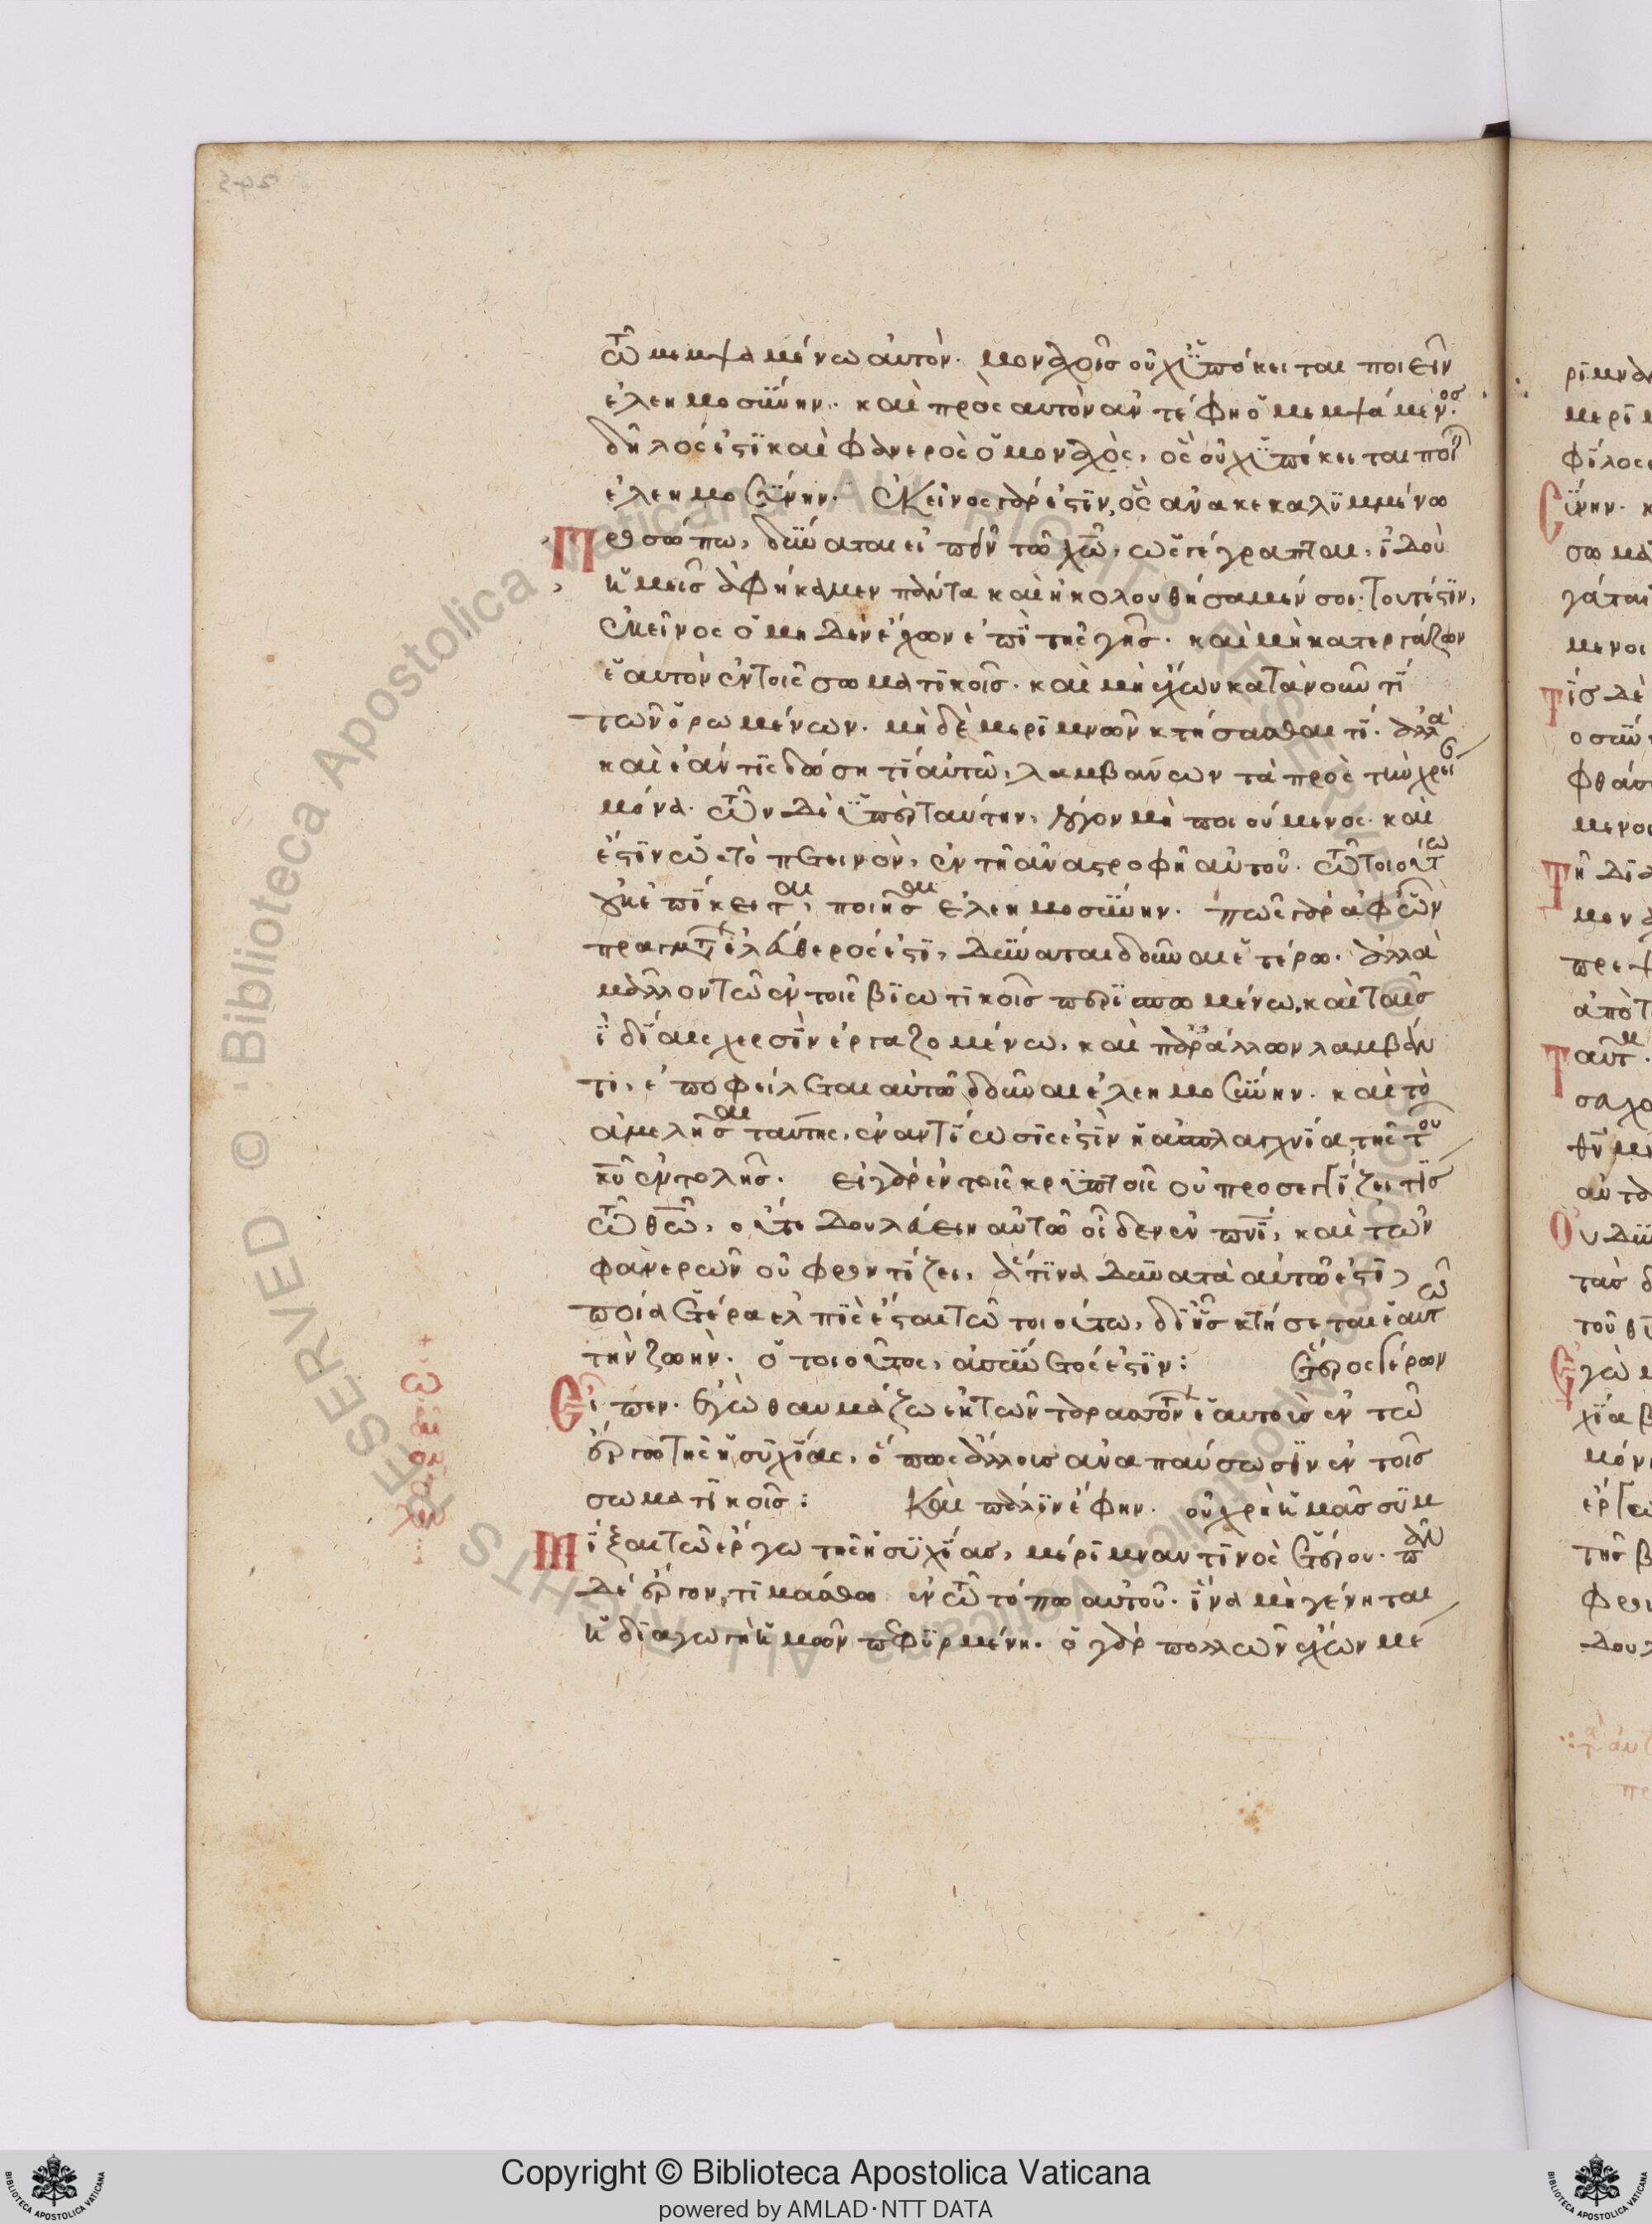 τῶ μεμψαμένω αὐτόν. μοναχοῖς οὐχ ὑπόκειται ποιεῖν
ἐλεημοσύνην. καὶ πρὸς αὐτὸν ἀντέφη ὁ μεμψάμενος.
δῆλός ἐστι καὶ φανερὸς ὁ μοναχὸς, ὃς οὐχ ὑπόκειται ποιεῖν
ἐλεημοσύνην. ἐκεῖνος γάρ ἐστιν, ὃς ἀνακεκαλυμμένω
Προσώπω, δύναται εἰπεῖν τῶ χω, ὡς γέγραπται, ἰδοὺ
ἡμεῖς ἀφήκαμεν πάντα καὶ ἠκολουθήσαμέν σοι. τουτέστιν,
ἐκεῖνος ὁ μηδὲν ἔχων ἐπὶ τῆς γῆς. καὶ μὴ κατεργάζων
ἑαυτὸν ἐν τοῖς σωματικοῖς. καὶ μὴ ἔχων κατὰ νοῦν τί
τῶν ὁρωμένων. μὴ δὲ μεριμνῶν κτήσασθαι τί. ἀλλὰ
καὶ ἐάν τις δώση τί αὐτῶ, λαμβάνων τὰ πρὸς τὴν χρεί
μόνα. τῶν δὲ ὑπὲρ ταύτην, λόγον μὴ ποιούμενος. καὶ
ἔστιν ὡς τὸ πετεινὸν, ἐν τῆ ἀναστροφῆ αὐτοῦ. τῶ τοιούτω
οὐκ ἐπίκειται, ποιῆσαι ἐλεημοσύνην. πῶς γὰρ ἀφ' ὧν
πραγμάτων ἐλεύθερός ἐστι, δύναται δοῦναι ἑτέρω. ἀλλὰ
μᾶλλον τῶ ἐν τοῖς βιωτικοῖς περισπωμένω, καὶ ταῖς
ἰδίαις χερσὶν ἐργαζομένω, καὶ παρ' ἄλλων λαμβάνον
τι, ἐποφείλεται αὐτῶ δοῦναι ἐλεημοσύνην. καὶ τὸ
ἀμελῆσαι ταύτης, ἐναντίωσίς ἐστιν ἡ ἀσπλαγχνία, τῆς τοῦ
κυ ἐντολῆς. εἰ γὰρ ἐν τοῖς κρυπτοῖς οὐ προσεγγίζει τὶς
τῶ θω, οὔτε δουλεύειν αὐτῶ οἶδεν ἐν πνι, καὶ τῶν
φανερῶν οὐ φροντίζει, ἅτινα δυνατὰ αὐτῶ ἐστὶ,
ποία ἑτέρα ἐλπὶς ἔσται τῶ τοιούτω, δι' ἧς κτήσεται ἑαυτῶ
τὴν ζωήν. ὁ τοιοῦτος, ἀσύνετός ἐστιν: ἕτερος γέρων
Εἶπεν. ἐγὼ θαυμάζω ἐκ τῶν ταραττόντων ἑαυτοὺς ἐν τῶ
ἔργω τῆς ἡσυχίας, ὅπως ἄλλοις ἀναπαύσωσιν ἐν τοῖς
σωματικοῖς: καὶ πάλιν ἔφην. οὐ χρὴ ἡμᾶς συμ
Μίξαι τῶ ἔργω τῆς ἡσυχίας, μέριμναν τινὸς ἑτέρου. πᾶν
δὲ ἔργον, τιμάσθω ἐν τῶ τόπω αὐτοῦ. ἵνα μὴ γένηται
ἡ διαγωγὴ ἡμῶν πεφυρμένη. ὁ γὰρ πολλῶν ἔχων μέ